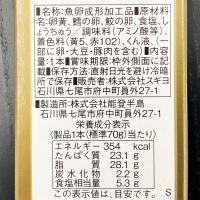 名称:魚卵成形加工品●原材料
名:卵黄、鱈の卵、鮫の卵、食塩、し
ょうちゅう／調味料(アミノ酸等)、
着色料(黄5、赤102)、くん液、(一
部に卵・大豆・豚肉を含む)●内容
量:1本●賞味期限:枠外側面に記載
●保存方法:直射日光を避け冷暗所
で保存●販売者:株式会社スギヨ
石川県七尾市府中町員外27-1
●製造所:株式会社能登半島
石川県七尾市府中町員外27-1
栄養成分表示
〈製品1本(標準70g)当たり〉
エネルギー 354 kcal
たんぱく質 23.1 g
脂質 28.1 g
炭水化物 2.2 g
食塩相当量 5.3 g
この表示値は、目安です。 S